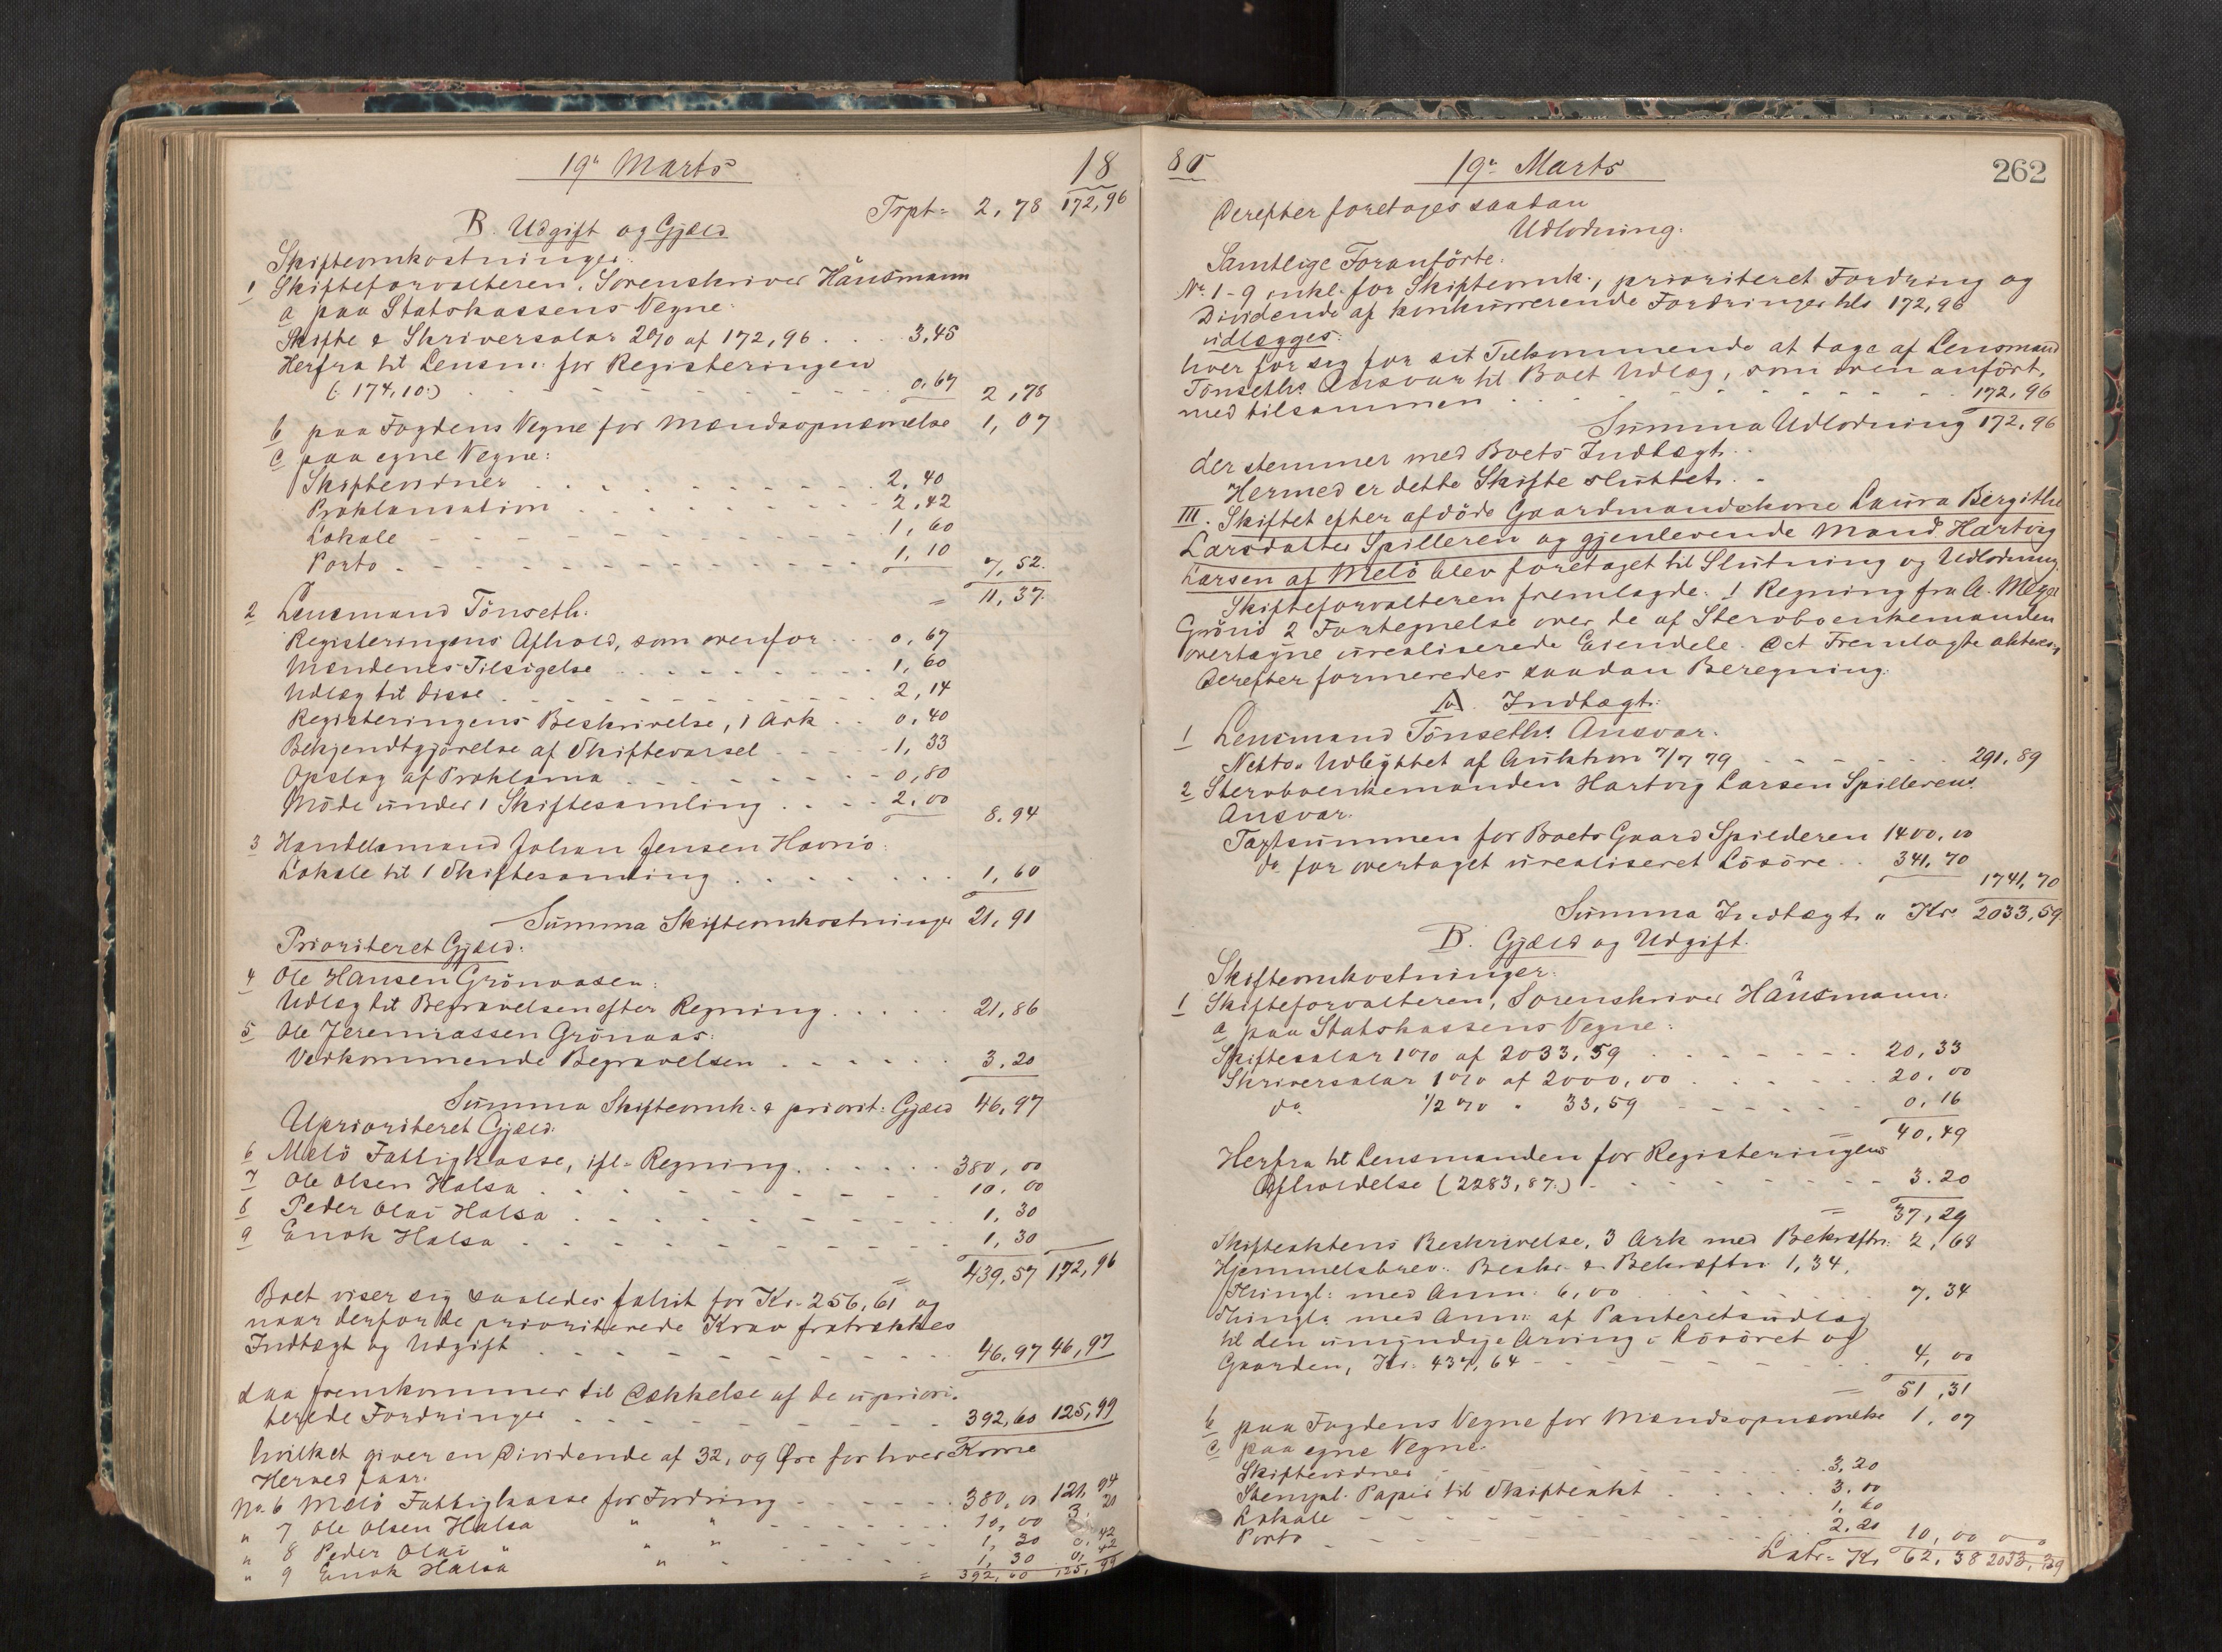 19n Marts 18
Trpt. 2,78 172,96
B. Udgift og Gjæld
Skifteomkostninger:
1 Skifteforvalteren, Sorenskriver Hausmann
a paa Statskassens Vegne:
Skifte & Skriversalar 2% af 172,96 . . . 3,45
Herfra til Lensm. for Registeringen
(: 174,10:) . . . 0,67 2,78
b paa Fogdens Vegne for Mændsopnævnelse 1,07
c paa egne Vegne:
Skiftevidner . . . 2,40
Proklamation . . . 2,42
Lokale . . . 1,60
Porto . . . 1,10 7,52
= 11,37.
2 Lensmand Tönseth:
Registeringens Afhold, som ovenfor . . 0,67
Mændenes Tilsigelse . . . 1,60
Udlæg til disse . . . 2,14
Registeringens Beskrivelse, 1 Ark . . 0,40
Bekjendtgjörelse af Skiftevarsel . . . 1,33
Opslag af Proklama . . . 0,80
Möde under 1 Skiftesamling . . . 2,00 8.94
3 Handelsmand Johan Jensen Havnö:
Lokale til 1 Skiftesamling . . . 1,60
Summa Skifteomkostninger 21,91
Prioriteret Gjæld:
4 Ole Hansen Grönaasen:
Udlæg til Begravelsen efter Regning . . . 21,86
5 Ole Jeremiassen Grönaas:
Vedkommende Begravelsen . . . 3.20
Summa Skifteomk: & priorit: Gjæld 46,97
Uprioriteret Gjæld:
6 Melö Fattigkasse, ifl. Regning . . . 380,00
7 Ole Olsen Halsa . . . 10,00
8 Peder Olai Halsa . . . 1,30
9 Enok Halsa . . . 1,30
= 439,57 172,96
Boet viser sig saaledes fallit for Kr. 256,61 og
naar derfor de prioriterede Krav fratrækkes
Indtægt og Udgift . . . 46,97 46,97
saa fremkommer til Dækkelse af de upriori-
terede Fordringer . . . 392,60 125,99
hvilket giver en Dividende af 32, og Öre for hver Krone
Herved faar:
No. 6 Melö Fattigkasse for Fordring . . . 380,00 121,94
" 7 Ole Olsen Halsa " " . . . 10,00 3,21
" 8 Peder Olai " " " . . . 1,30 0,42
" 9 Enok Halsa " . . . 1,30 0,42
= 392,60 125,99
80 19n Marts 262
Derefter foretages saadan
Udlodning.
Samtlige Foranförte:
No. 1-9 inkl. for Skifteomk:, prioriteret Fordring og
Dividende af konkurrerende Fordringer tils 172,96
udlægges:
hver for sig for sit Tilkommende at tage af Lensmand
Tönseths Ansvar til Boet Udlæg, som oven anfört,
med tilsammen . . . 172,96
Summa Udlodning 172,96
der stemmer med Boets Indtægt. .
Hermed er dette Skifte sluttet. -
III. Skiftet efter afdöde Gaardmandskone Laura Bergithe
Larsdatter Spilleren og gjenlevende Mand Hartvig
Larsen af Melö blev foretaget til Slutning og Udlodning.
Skifteforvalteren fremlagde: 1 Regning fra A. Meyer
Grönö 2 Fortegnelse over de af Stervboenkemanden
overtagne urealiserede Eiendele. Det Fremlagte akteres
Derefter formeredes saadan Beregning:
A. Indtægt:
1 Lensmand Tönseths Ansvar:
Netto Udbyttet af Auktion 7/7 79 . . . 291,89
2 Stervboenkemanden Hartvig Larsen Spillerens
Ansvar.
Taxtsummen for Boets Gaard Spilderen 1400,00
do for overtaget urealiseret Lösöre . . 341,70
1741,70
Summa Indtægt " Kr. 2033,59
B. Gjæld og Udgift.
Skifteomkostninger:
1 Skifteforvalteren, Sorenskriver Hausmann:
a paa Statskassens Vegne:
Skiftesalar 1% af 2033,59 . . . 20,33
Skriversalar 1% af 2000,00 . . . 20,00
do. 1/2 % " 33,59 . . . 0,16
= 40,49
Herfra til Lensmanden for Registeringens
Afholdelse (2283,87.) . . . 3.20
= 37,29
Skifteaktens Beskrivelse, 3 Ark med Bekræftn: 2,68
Hjemmelsbrev: Beskr. & Bekræftn 1,34,
Thingl: med Anm: 6,00 . . . 7.34
Thingl: med Anm: af Panteretsudlæg
til den umyndige Arving i Lösöret og
Gaarden, Kr. 437,64 . . . 4,00
= 51,31
b paa Fogdens Vegne for Mændsopnævnelse 1,07
c paa egne Vegne:
Skiftevidner . . . 3,20
Stempl. Papir til Skifteakt . . . 3,00
Lokale . . . 1,60
Porto . . . 2,20 10,00
Latr. Kr. 62,38 2033,59